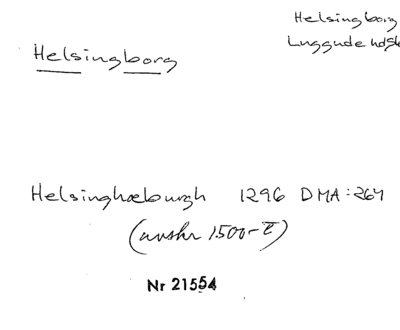 Helsingborg
Luggude hdsk
Helsingborg
Helsinghæburgh 1296 DMA:264
(avskr 1500-t)
Nr 21554